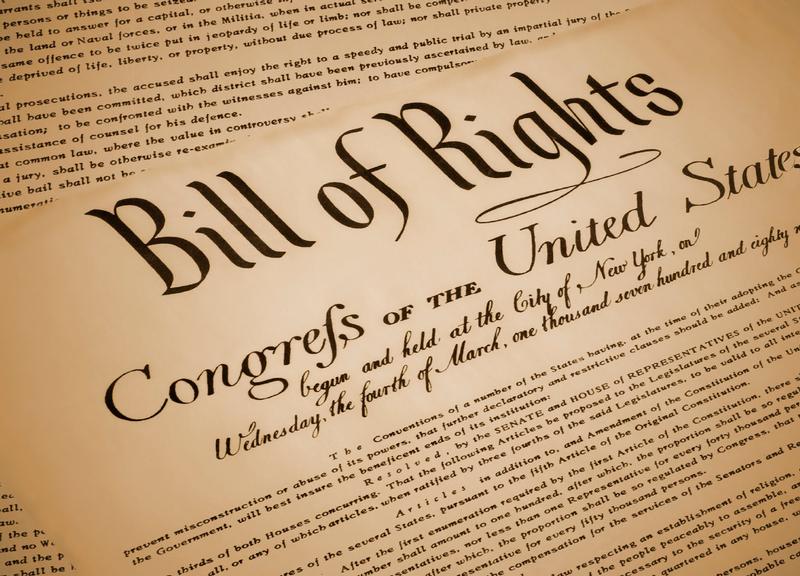 arrants shall issue
persons or things to be seized.
be held to answer for a capital, or otherwise
the land or Naval forces, or in the Militia, when in actual
same offence to be twice put in jeopardy of life or limb; nor shall be
deprived of life, liberty, or property, without due process of law; nor shall private property
al prosecutions, the accused shall enjoy the right to a speedy and public trial by an impartial jury of the
hall have been committed, which district shall have been previously ascertained by law,
sation; to be confronted with the witnesses against him; to have compulsor
assistance of counsel for his defence.
at common law, where the value in controversy
a jury, shall be otherwise re-exam
ive bail shall not be
Bill of Rights
Congreſs OF THE United States
begun and held at the City of New York, on
Wednesday, the fourth of March, one thousand seven hundred and eighty
The Conventions of a number of the States having, at the time of their adopting the
prevent misconstruction or abuse of its powers, that further declaratory and restrictive clauses should be added: And
the Government, will best insure the beneficent ends of its institution:
Resolved, by the SENATE and HOUSE of REPRESENTATIVES of the
thirds of both Houses concurring. That the following Articles be proposed to the Legislatures of the several
all, or any of which articles, when ratified by three fourths of the said Legislatures, to be valid to all
Articles in addition to, and Amendment of the Constitution of the
res of the several States, pursuant to the fifth Article of the Original Constitution.
After the first enumeration required by the first Article of the Constitution, there
number shall amount to one hundred, after which, the proportion shall be so
Representatives, nor less than one Representative for every forty thousand
after which, the proportion shall be so regulated by Congress, that
Representative for every fifty thousand persons.
the compensation for the services of the Senators and
law respecting an establishment of religion,
the people peaceably to assemble, and
necessary to the security of a free
quartered in any house,